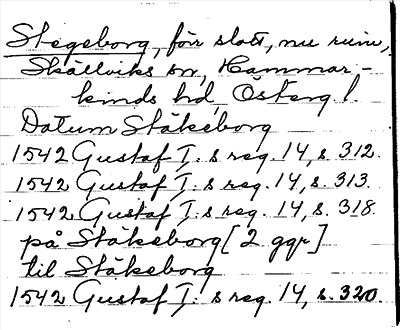 Stegeborg, förr slott, nu ruin,
Skällviks sn, Hammar-
kinds hd, Österg.l.
Datum Stäkeborg
1542 Gustaf I:s reg. 14, s. 312.
1542 Gustaf I:s reg. 14, s. 313.
1542 Gustaf I:s reg. 14, s. 318.
på Stäkeborg [2 ggr]
til Stäkeborg
1542 Gustaf I:s reg. 14, s. 320.